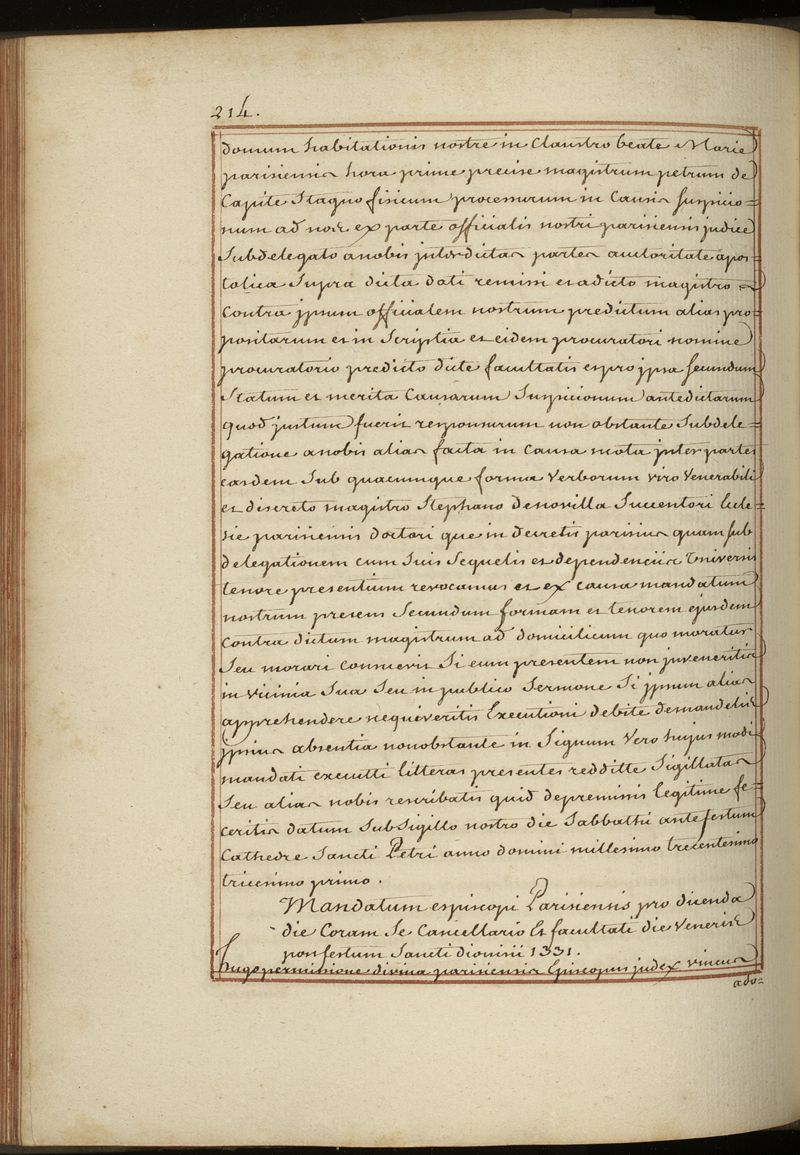 214.
domum habitationis nostre in Claustro beate Marie
parisiensis hora prime precise magistrum petrum de
Capite Stagno fisicum processurum in Causis suspicio=
num ad nos ex parte officialis nostri parisiensis judice
Subdelegato a nobis inter dictas partes autoritate apos=
tolica Supra dicta dati remissi et a dicto magistro
Contra ipsum officialem nostrum predictum alias pro=
positarum et in Scriptis et eidem procuratori nomine
procuratorio predicto dicte facultatis et pro ipsa secundum
Statum et merita Causarum Suspicionum antedictarum
quod justum fuerit responsurum non obstante Subdele=
gatione a nobis alias facta in causa mota inter partes
easdem Sub quacumque forma Verborum viro Venerabili
et discreto magistro Stephano denovilla Succentori Eccle=
sie parisiensis doctori que in decretis parisius quam sub
delegationem cum Suis Sequelis et dependenciis Universis
tenore presentium revocamus et ex causa mandatum
nostrum presens Secundum formam et tenorem ejusdem
Contra dictum magistrum ad domicilicum quo moratur
Seu morari consuevit Si eum presentem non inveneritis
in vicinia Sua Seu in publico Sermone Si ipsum alias
apprehendere nequiveritis Executioni debite demandetis
ipsius absentia nonobstante in Signum Vero hujus modi
mandati executti litteras presentes redditte Sigillatas
Seu alias nobis rescribatis quid depremissis legitime fe=
ceritis datum Sub Sigillo nostro die Sabbathi ante festum
Cathedre Sancti Petri anno domini millesimo trecentesimo
tricesimo primo.
Mandatum episcopi Parisiensis pro dicenda
die Coram Se Cancellario Et facultati die Veneris
post festum Sancti dionisii 1331.
hugo permissione divina parisiensis Episcopus judex unicus
ado=